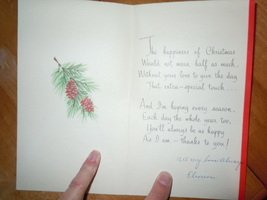 The happiness of Christmas
Would not mean half as much
Without your love to give the day
That extra-special touch...
And I'm hoping every season,
Each day the whole year too,
You'll always be as happy
As I am - thanks to you!
All my love Always